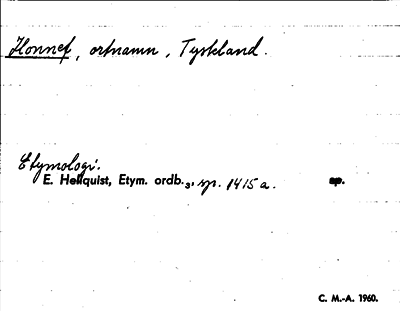 Honnef, ortnamn, Tyskland.
Etymologi:
E. Hellquist, Etym. ordb.3, sp. 1415 a.
C. M.-A. 1960.